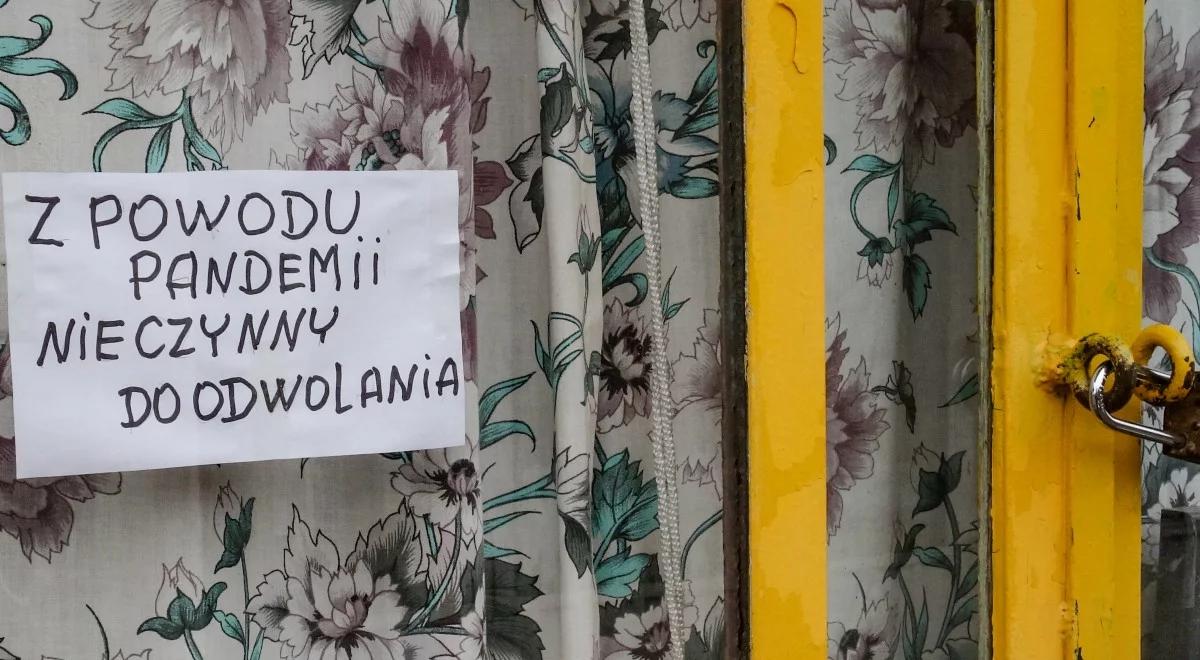 Z POWODU
PANDEMii
NiECZYNNY
DOODWOLANiA